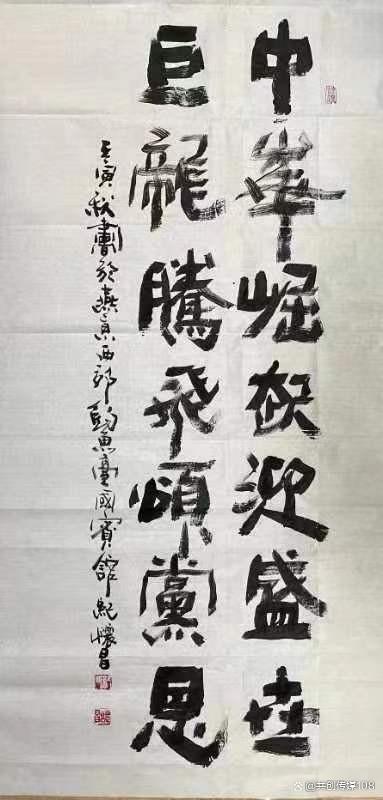 中華崛起迎盛世
巨龍騰飛頌黨恩
壬寅秋書於燕京西郊釣魚臺國賓館 紀懷昌
@共创传媒108